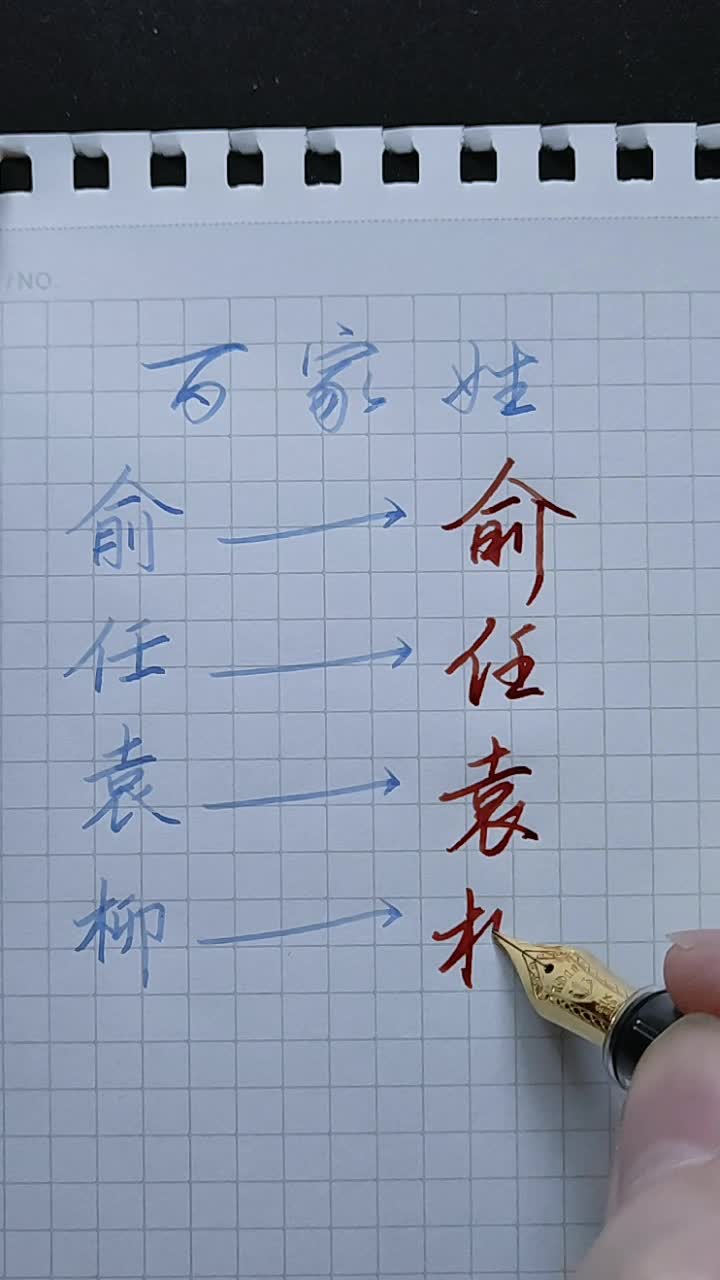 /NO.
百家姓
俞 → 俞
任 → 任
袁 → 袁
柳 →